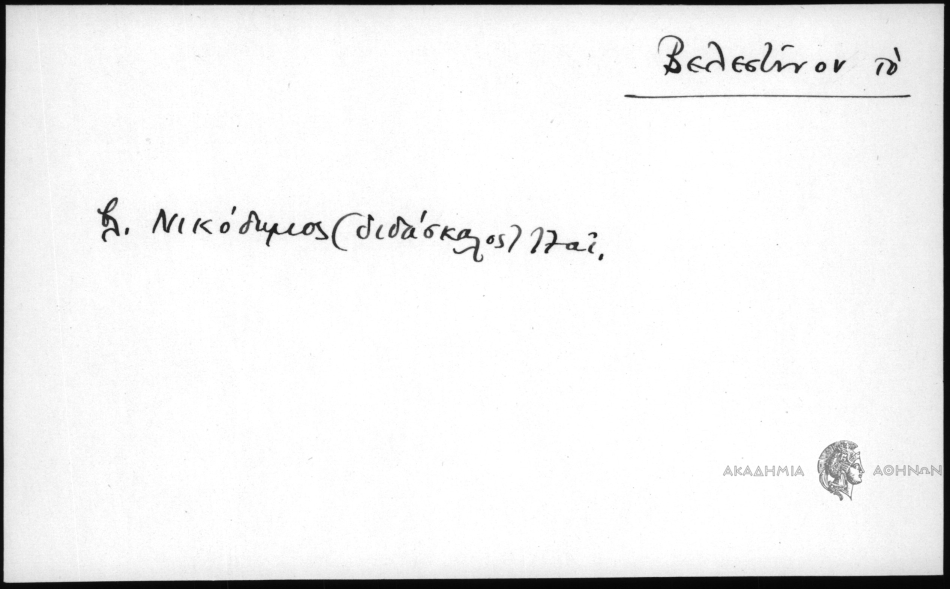 Βελεστῖνον τό
βλ. Νικόδημος (διδάσκαλος)
ΑΚΑΔΗΜΙΑ ΑΘΗΝΩΝ